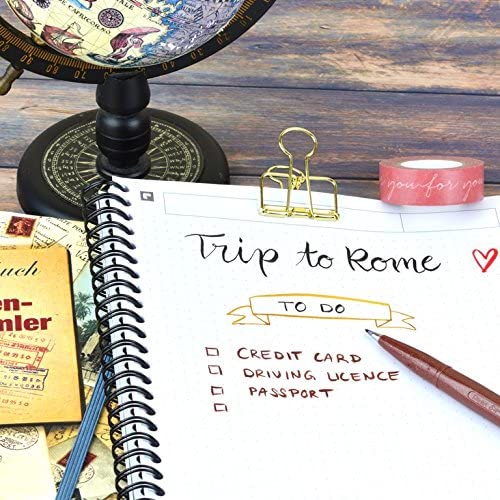 CAPRICORNO
you · for yo
Trip to Rome
TO DO
CREDIT CARD
DRIVING LICENCE
PASSPORT
uch
en-
mler